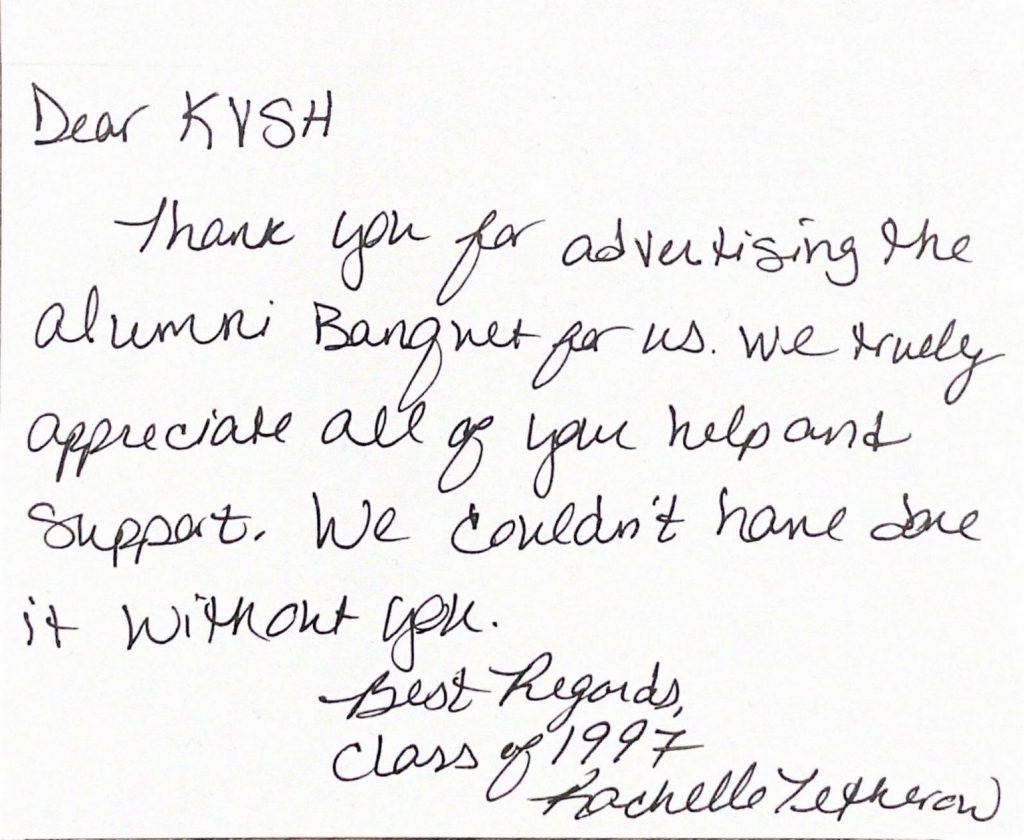 Dear KVSH
Thank you for advertising the
alumni Banquet for us. We truely
appreciate all of your help and
Support. We couldn't have done
it without you.
Best Regards,
Class of 1997
Rachelle